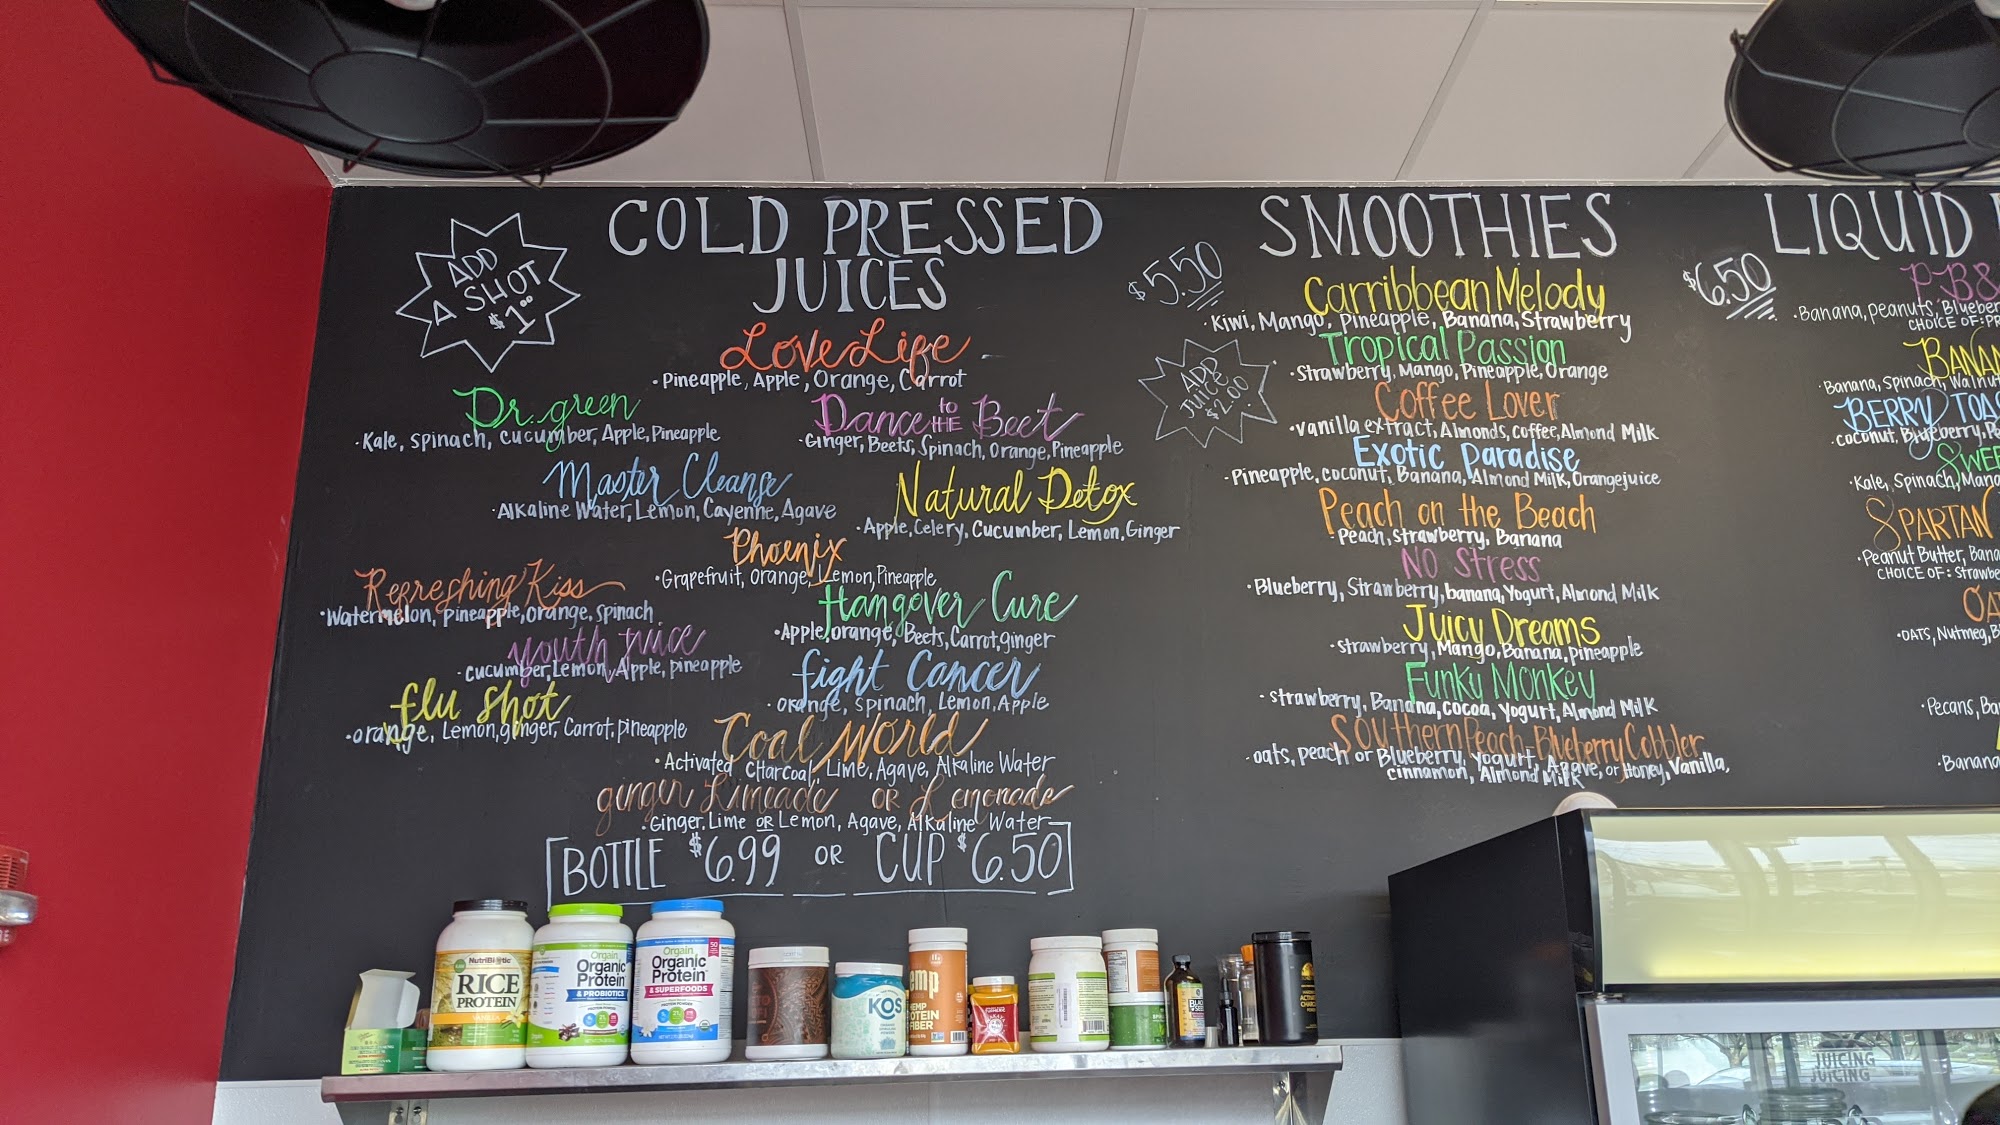 ADD
A SHOT
$1.00
COLD PRESSED
JUICES
Love Life
•Pineapple, Apple, Orange, Carrot
Dr. green
•Kale, Spinach, Cucumber, Apple, Pineapple
Dance to the Beet
•Ginger, Beets, Spinach, Orange, Pineapple
Master Cleanse
•Alkaline Water, Lemon, Cayenne, Agave
Natural Detox
•Apple, Celery, Cucumber, Lemon, Ginger
Phoenix
•Grapefruit, Orange, Lemon, Pineapple
Refreshing Kiss
•Watermelon, Pineapple, Orange, Spinach
Hangover Cure
•Apple, orange, Beets, Carrot, ginger
youth juice
•cucumber, Lemon, Apple, pineapple
fight Cancer
•Orange, Spinach, Lemon, Apple
flu shot
•orange, Lemon, ginger, Carrot, pineapple
Coal World
•Activated Charcoal, Lime, Agave, Alkaline Water
ginger Limeade OR Lemonade
•Ginger, Lime OR Lemon, Agave, Alkaline Water
BOTTLE $6.99 OR CUP $6.50
$5.50
SMOOTHIES
ADD
JUICE
$2.00
Carribbean Melody
•Kiwi, Mango, Pineapple, Banana, Strawberry
Tropical Passion
•Strawberry, Mango, Pineapple, Orange
Coffee Lover
•Vanilla extract, Almonds, Coffee, Almond Milk
Exotic Paradise
•Pineapple, coconut, Banana, Almond Milk, Orange juice
Peach on the Beach
•Peach, Strawberry, Banana
NO Stress
•Blueberry, Strawberry, banana, Yogurt, Almond Milk
Juicy Dreams
•strawberry, Mango, Banana, pineapple
Funky Monkey
•Strawberry, Banana, cocoa, Yogurt, Almond Milk
Southern Peach-Blueberry Cobbler
•oats, peach or Blueberry, Yogurt, Agave, or Honey, Vanilla,
cinnamon, Almond Milk
$6.50
LIQUID
P.B&
•Banana, peanuts, Blueber
CHOICE OF: PR
BANAN
•Banana, Spinach, Walnut
BERRY TOAS
•coconut, Blueberry, Pe
SWEE
•Kale, Spinach, Mang
SPARTAN
•Peanut Butter, Bana
CHOICE OF: Strawbe
OA
•OATS, Nutmeg, B
•Pecans, Ba
•Banana
NutriBiotic
RICE
PROTEIN
VANILLA
Orgain
Organic
Protein
& PROBIOTICS
Orgain
Organic
Protein
& SUPERFOODS
50
KOS
hemp
HEMP
PROTEIN
FIBER
JUICING
JUICING